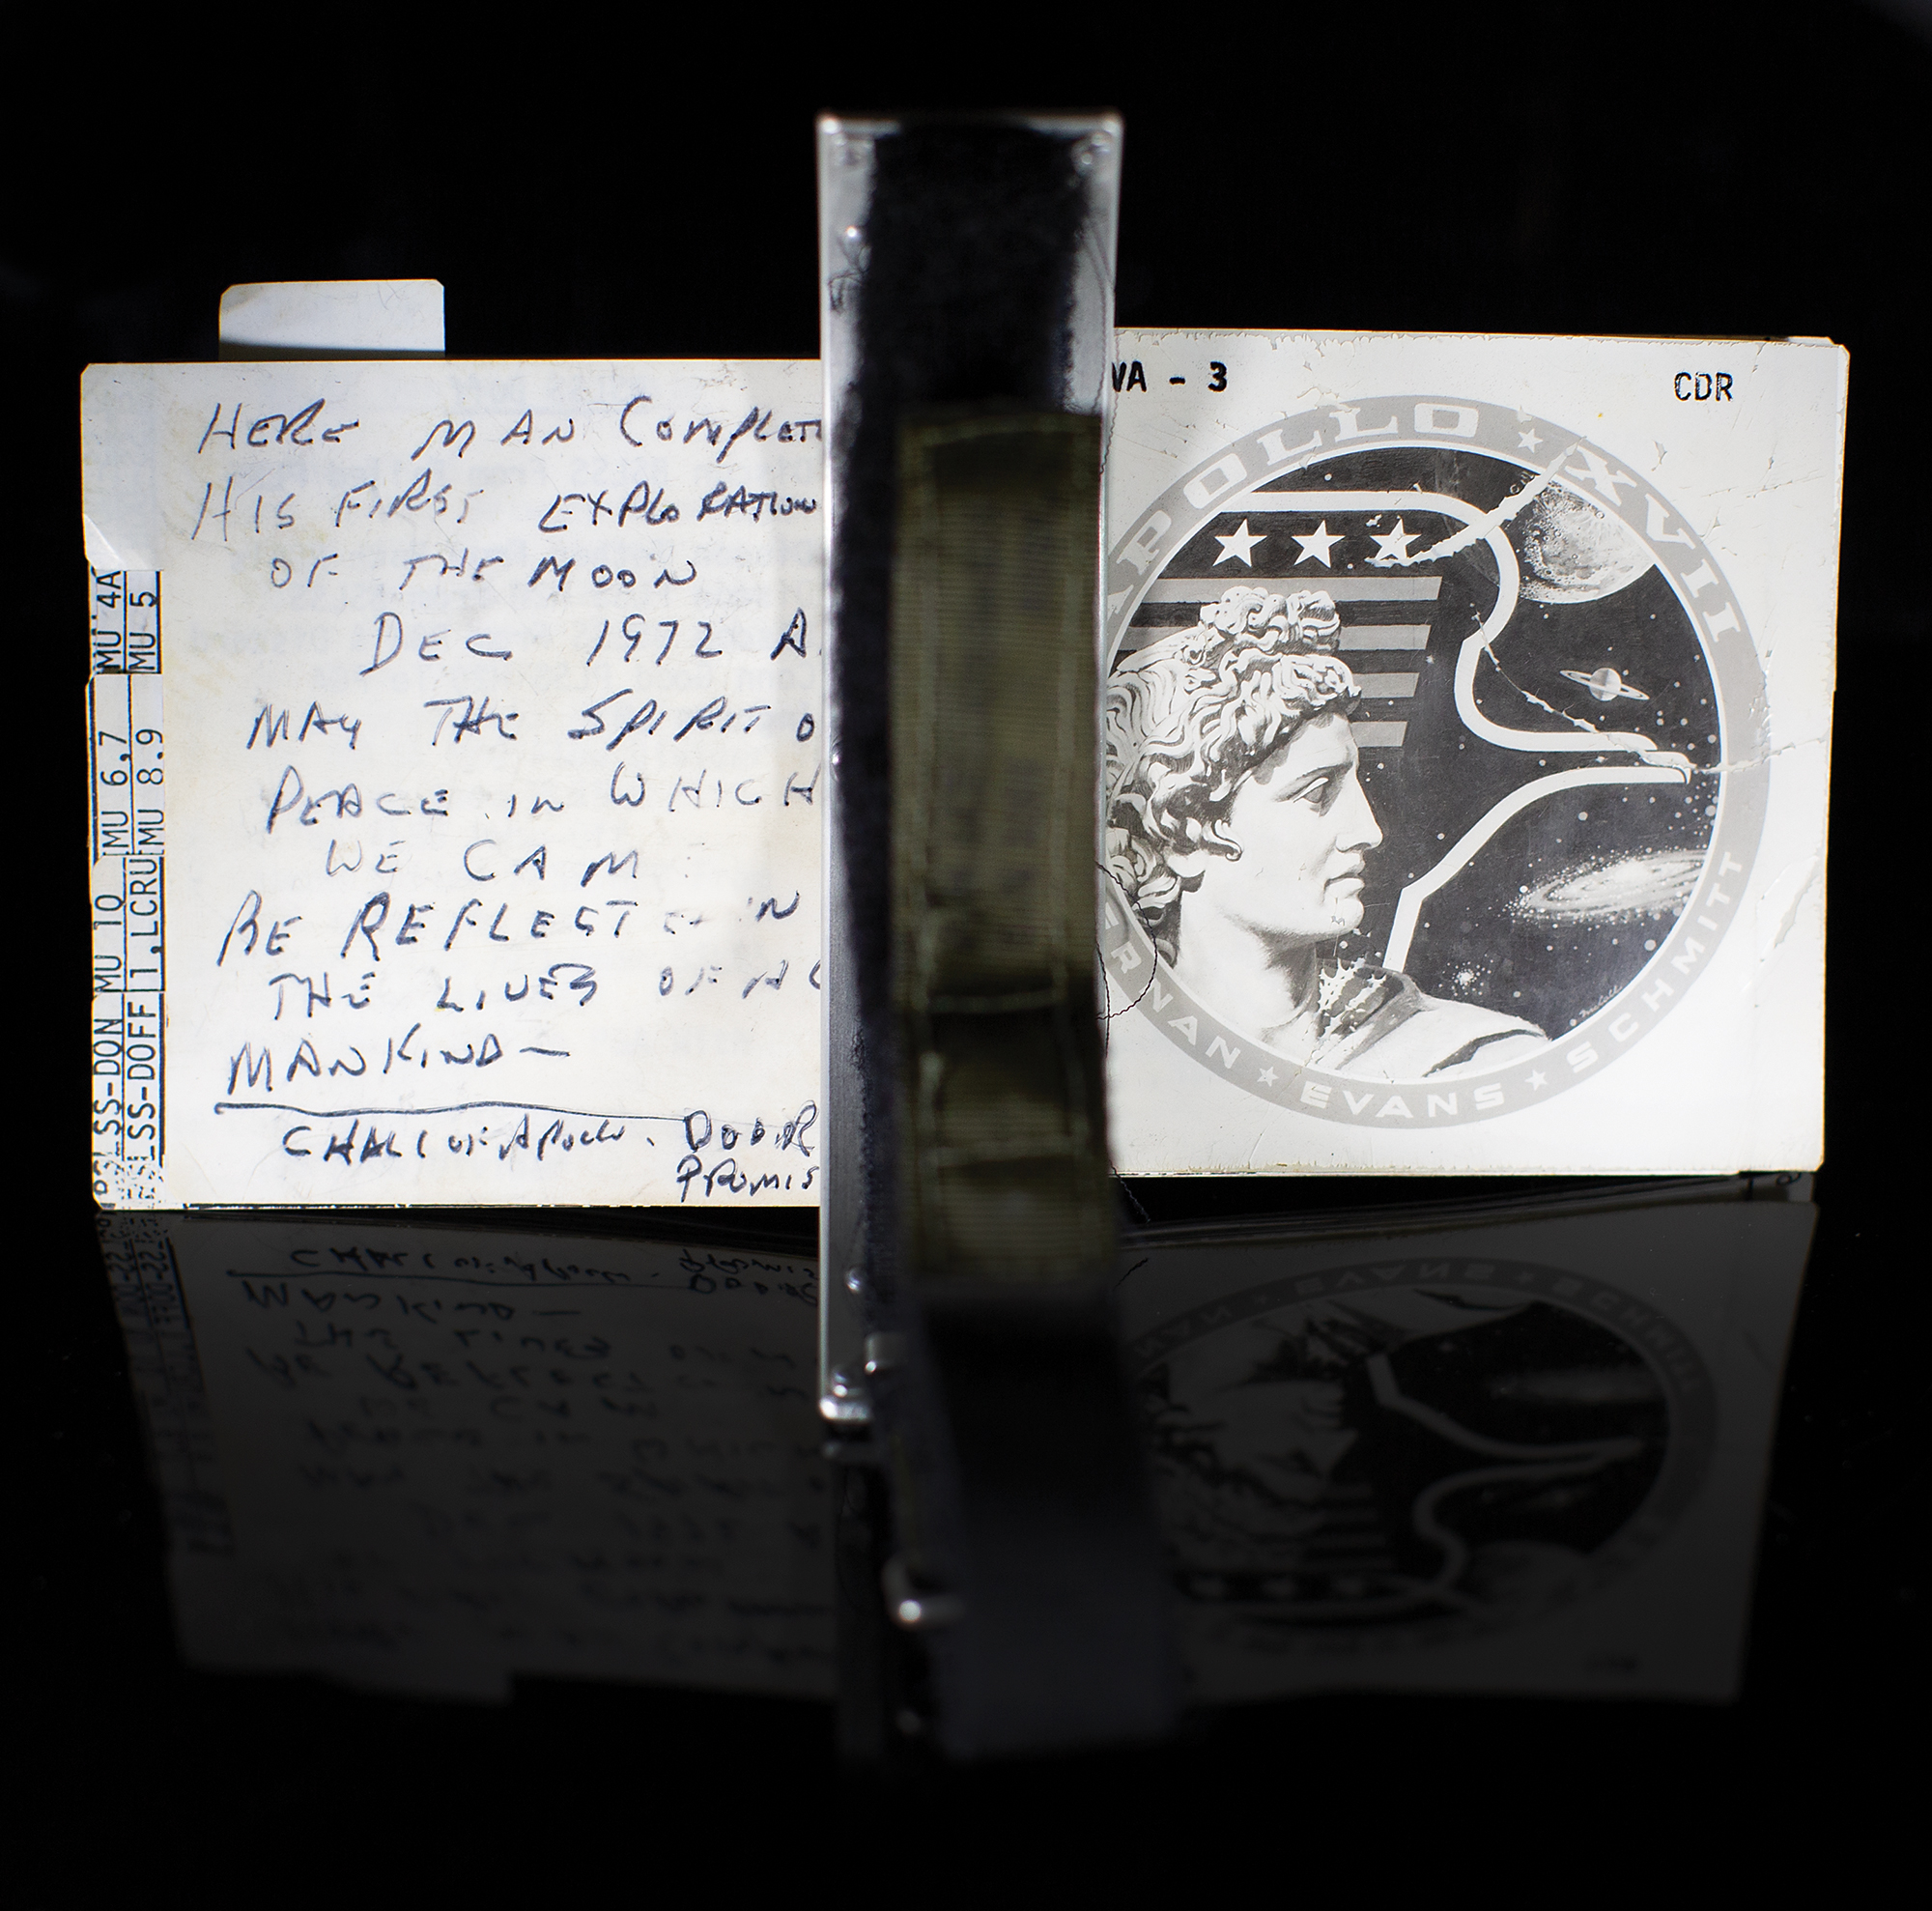 HERE MAN COMPLET
HIS FIRST EXPLORATION
OF THE MOON
DEC 1972 A.
MAY THE SPIRIT O
PEACE IN WHICH
WE CAM
BE REFLECTED IN
THE LIVES OF
MANKIND—
CHALL OF APOLLO.
PROMIS
MU 4A
MU 5
MU 6,7
MU 8.9
MU 10
1.LCRU
SS-DON
SS-DOFF
VA - 3
CDR
APOLLO ★ XVII
ERNAN ★ EVANS ★ SCHMITT